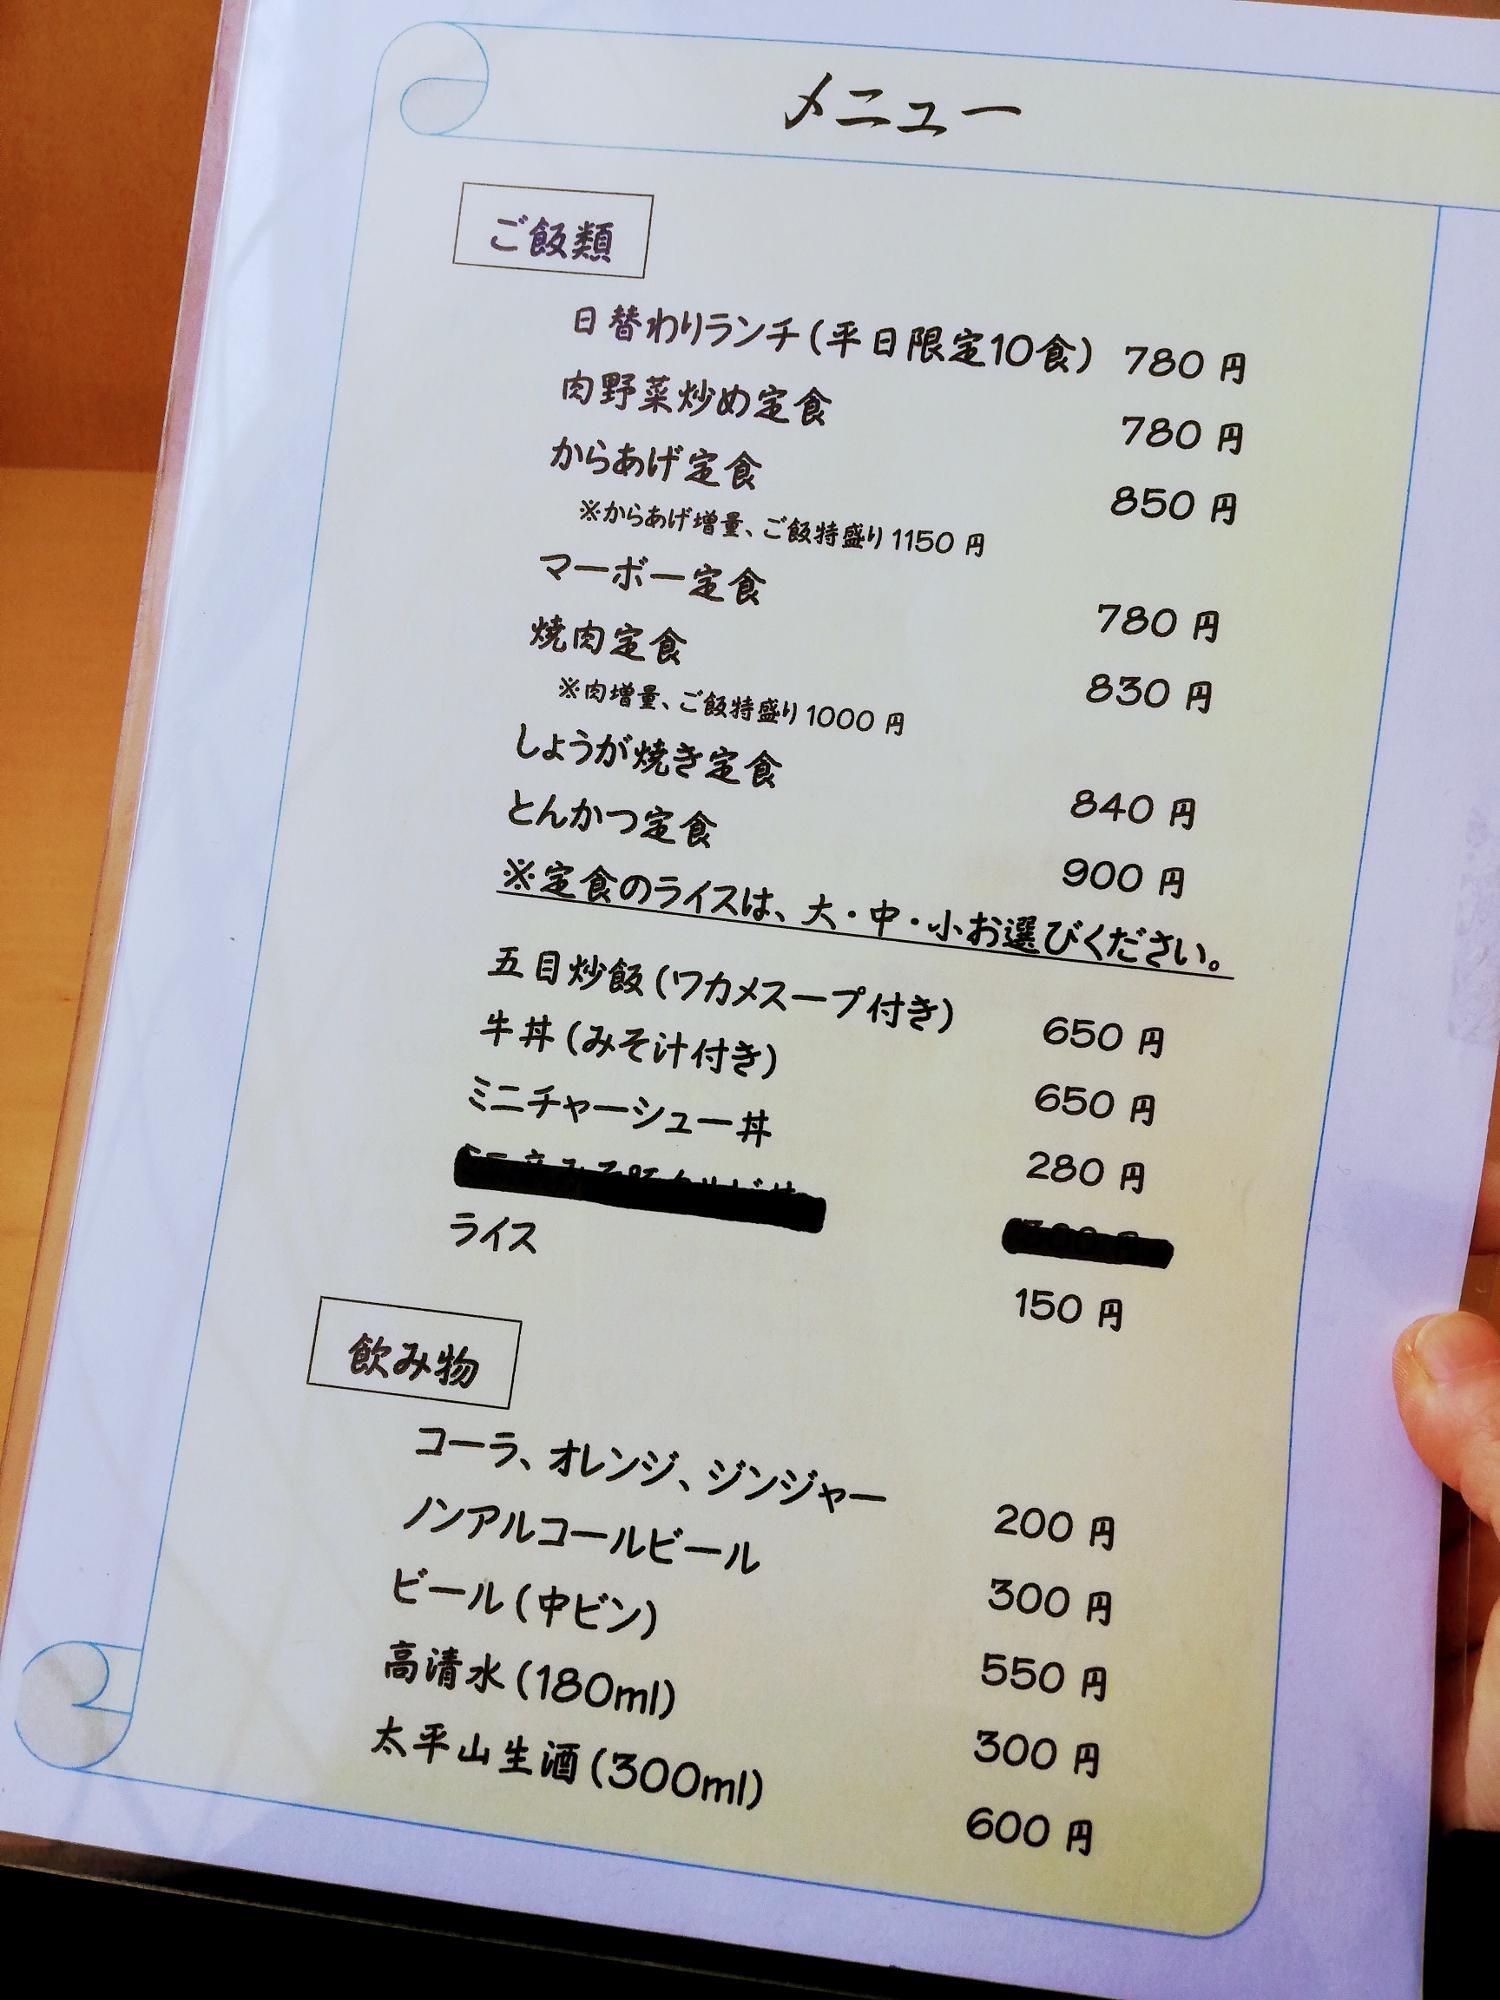 メニュー
ご飯類
日替わりランチ(平日限定10食) 780 円
肉野菜炒め定食 780 円
からあげ定食 850 円
※からあげ増量、ご飯特盛り1150 円
マーボー定食 780 円
焼肉定食 830 円
※肉増量、ご飯特盛り1000 円
しょうが焼き定食 840 円
とんかつ定食 900 円
※定食のライスは、大・中・小お選びください。
五目炒飯(ワカメスープ付き) 650 円
牛丼(みそ汁付き) 650 円
ミニチャーシュー丼 280 円
ライス 150 円
飲み物
コーラ、オレンジ、ジンジャー 200 円
ノンアルコールビール 300 円
ビール(中ビン) 550 円
高清水(180ml) 300 円
太平山生酒(300ml) 600 円